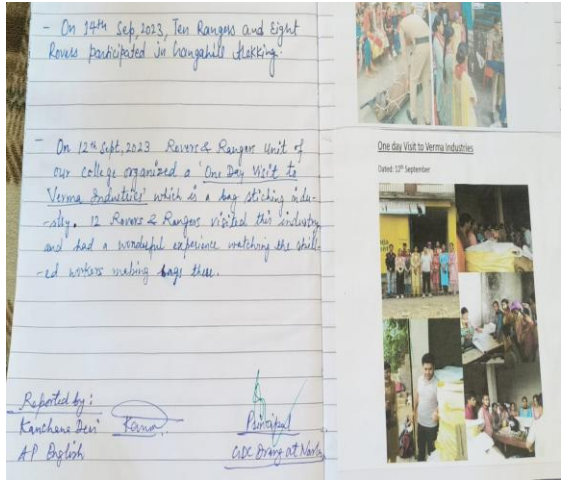 - On 14th Sep, 2023, Ten Rangers and Eight
Rovers participated in trekking.
- On 12th Sept, 2023 Rovers & Rangers Unit of
our college organized a 'One Day Visit to
Verma Industries' which is a bag stiching indu-
-stry. 12 Rovers & Rangers visited this industry
and had a wonderful experience watching the skill-
-ed workers making bags there.
Reported by :
Kanchana Devi
AP English
Principal
GDC Drang at Narla
One day Visit to Verma Industries
Dated: 12th September